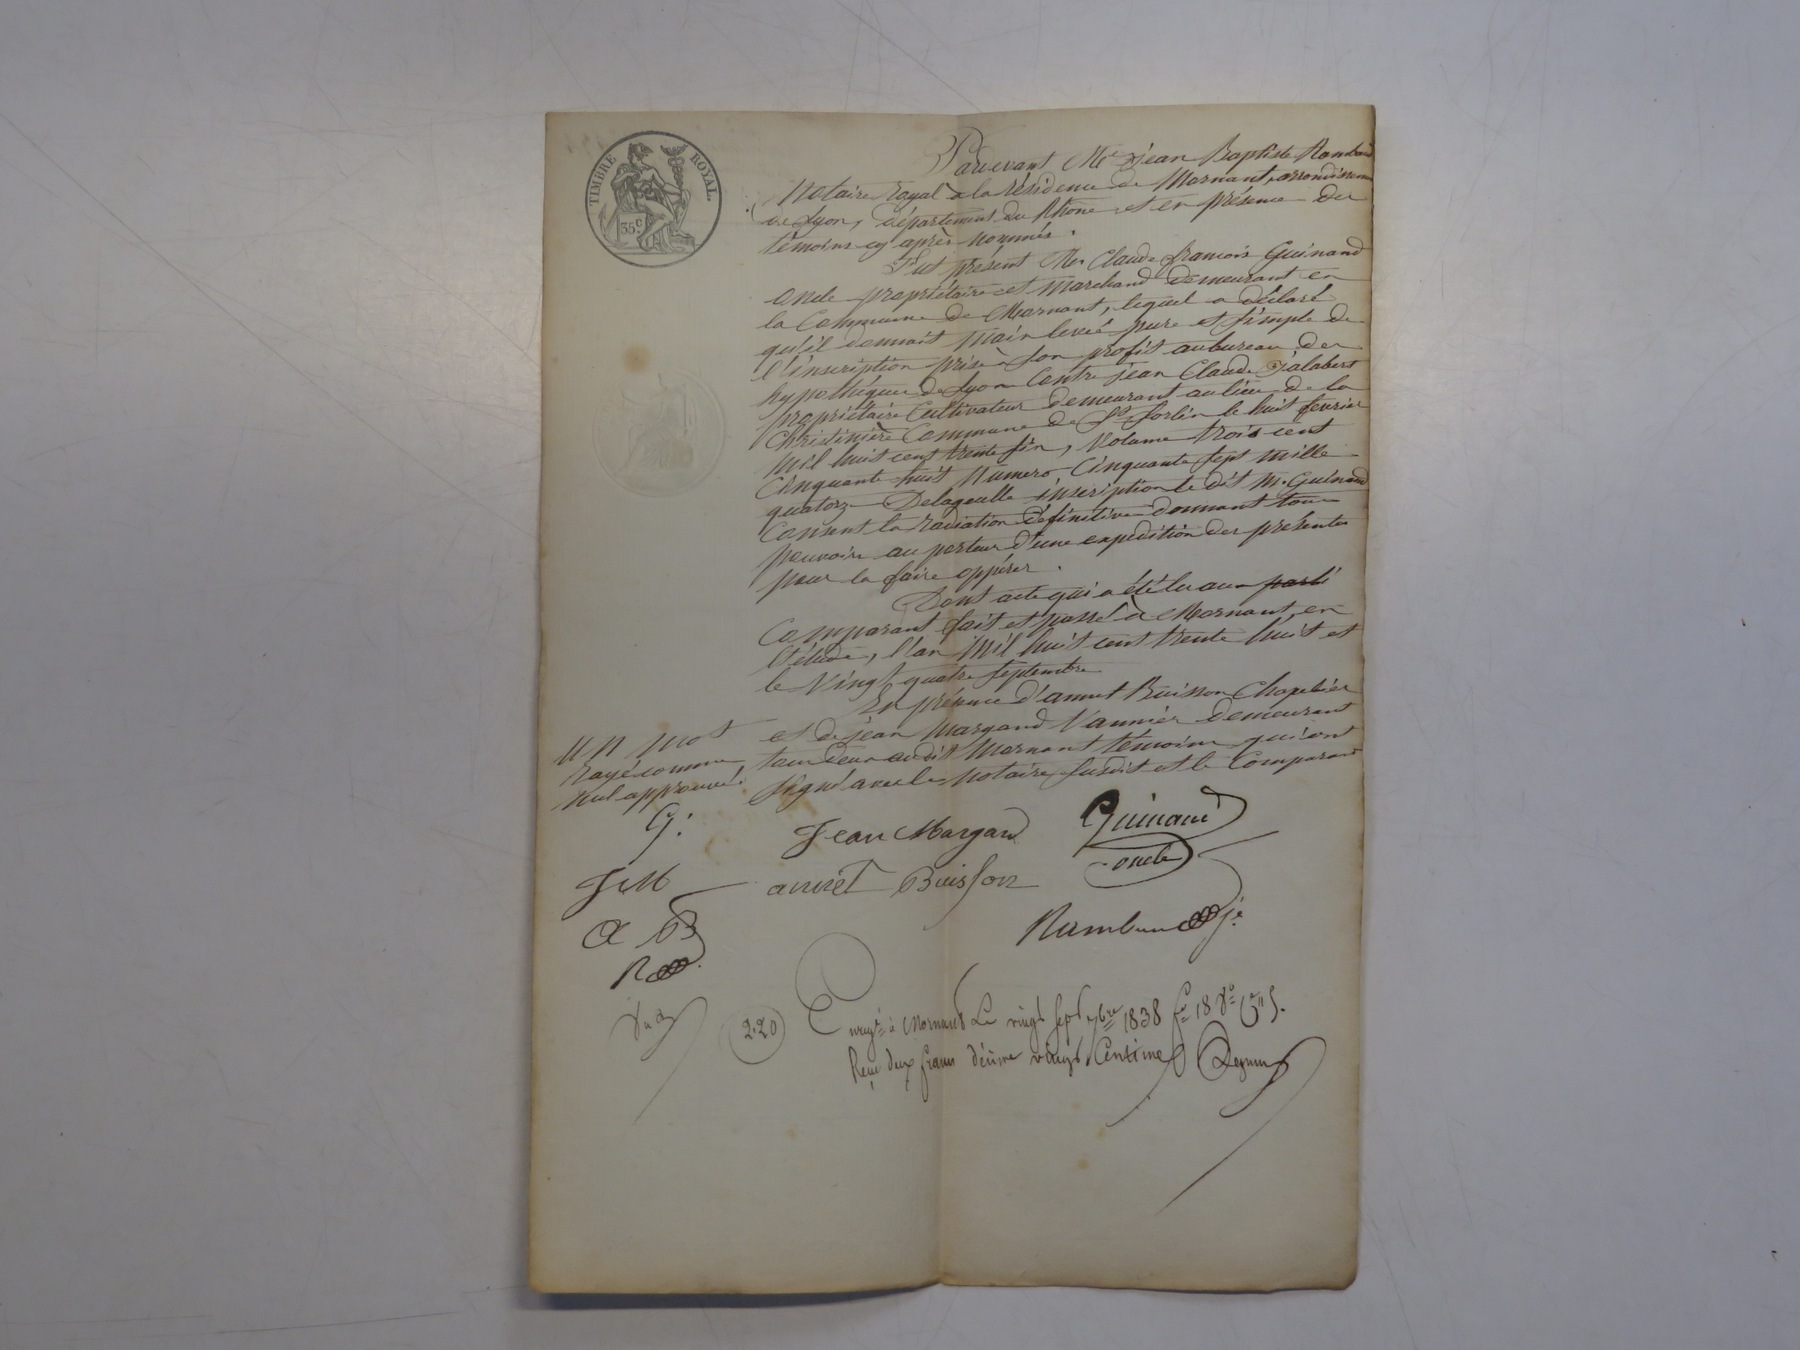 TIMBRE ROYAL
35c
Pardevant Me Jean Baptiste Rambaud
Notaire royal a la résidence de Mornant, arrondissement
de Lyon, département du Rhône et en présence des
témoins cy après nommés.
Fut présent Mr Claude françois Guinand
oncle propriétaire et marchand demeurant en
la Commune de Mornant, lequel a déclaré
qu'il donnait main levée pure et simple de
l'inscription prise à son profit au bureau des
hypothèques de Lyon Contre jean Claude Jalabert
propriétaire Cultivateur demeurant au lieu de la
Christinière Commune de St Sorlin le huit fevrier
mil huit cent trente six, Volume trois cent
Cinquante huit Numero Cinquante sept mille
quatorze Delaquelle inscription le dit Mr Guinand
Consent la radiation définitive donnant tous
pouvoirs au porteur d'une expédition des présentes
pour la faire oppérer.
Dont acte qui a été lu aux parti
Comparant fait et passé à Mornant, en
l'étude, l'an Mil huit cent trente huit et
le Vingt quatre septembre
En présence d'annet Buisson Chapelier
et de jean Margand Vannier demeurant
tous deux audit Mornant témoins qui ont
signé avec les notaire susdit et le Comparant
un mot
Rayé comme
nul approuvé
G.
JM
a B
R
Jean Margand
Guinand
oncle
annet Buisson
Rambaud je
2.20
Enregté à Mornant Le vingt sept 7bre 1838 fo 18 Vo
Reçu deux francs décime vingt Centimes